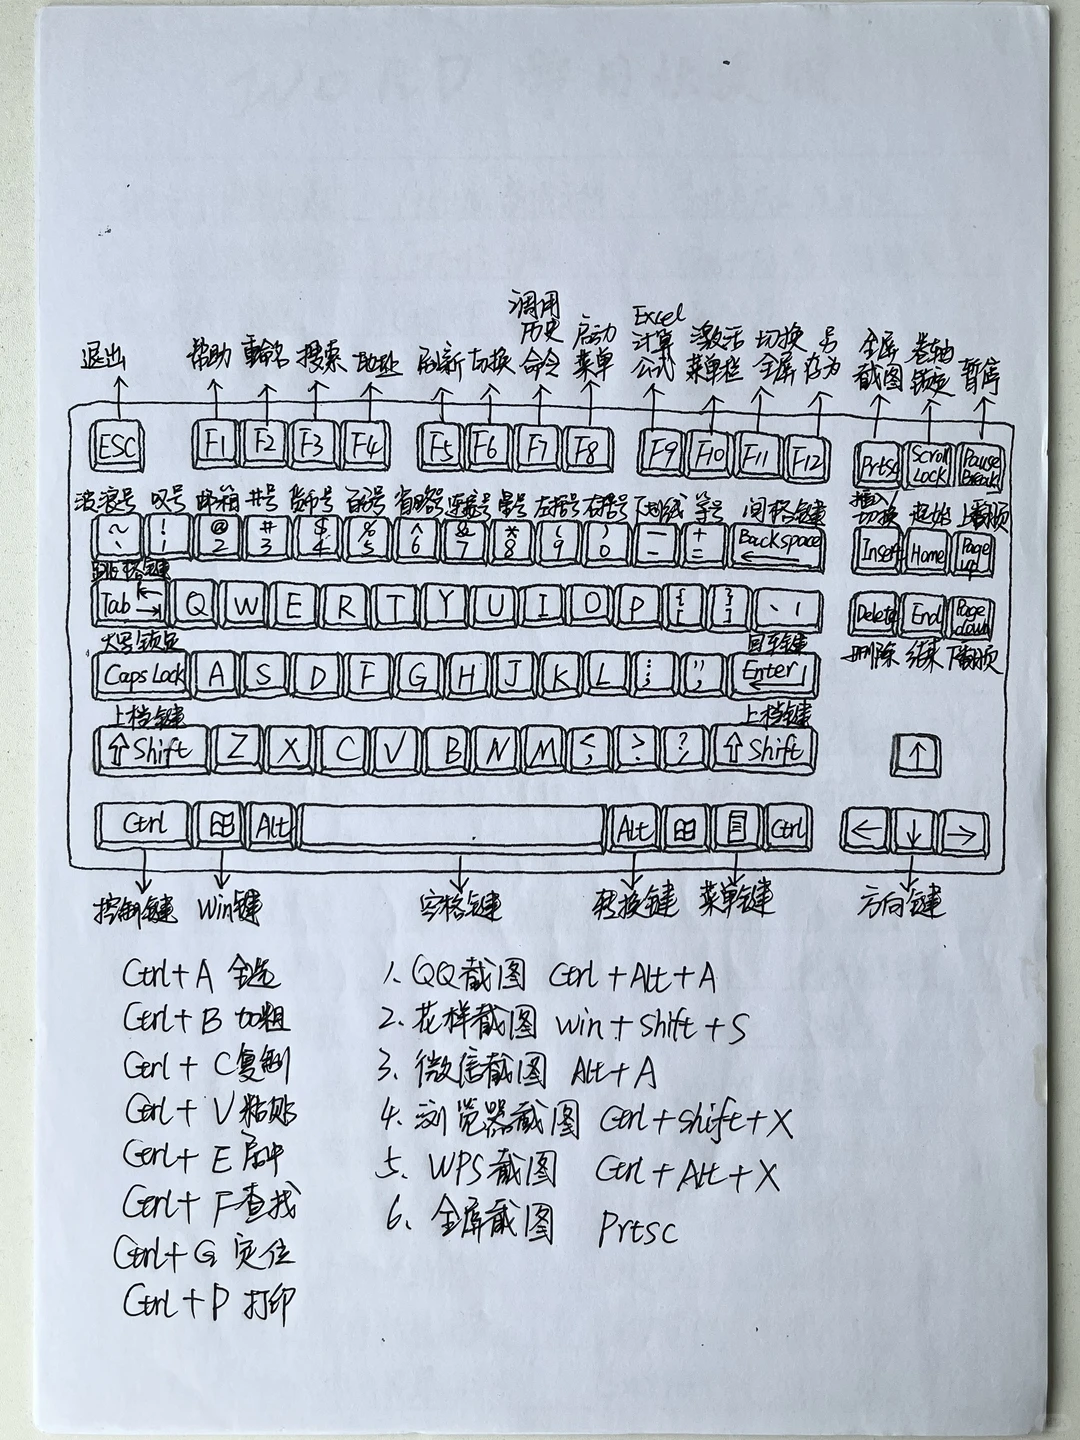 调用 Excel
历史 启动 计算 激活 切换 另 全屏 卷轴
退出 帮助 重命名 搜索 地址 刷新 切换 命令 菜单 公式 菜单栏 全屏 存为 截图 锁定 暂停
ESC F1 F2 F3 F4 F5 F6 F7 F8 F9 F10 F11 F12 Prtsc Scroll Lock Pause Break
波浪号 叹号 邮箱 井号 货币号 百分号 省略号 连接号 星号 左括号 右括号 下划线 等号 间格键 插入/切换 起始 上翻页
~ ` ! 1 @ 2 # 3 $ 4 % 5 ^ 6 & 7 * 8 ( 9 ) 0 — - + = Backspace ← Insert Home Page up
跳格键
Tab Q W E R T Y U I O P { [ } ] 、 | Delete End Page down
大写锁定 回车键 删除 结束 下翻页
Caps Lock A S D F G H J K L : ; " , Enter
上档键 上档键
⇧ Shift Z X C V B N M < , > . ? / ⇧ Shift ↑
Ctrl Alt Alt Ctrl ← ↓ →
控制键 Win键 空格键 转换键 菜单键 方向键
Ctrl + A 全选
Ctrl + B 加粗
Ctrl + C 复制
Ctrl + V 粘贴
Ctrl + E 居中
Ctrl + F 查找
Ctrl + G 定位
Ctrl + P 打印
1、QQ截图 Ctrl + Alt + A
2、花样截图 win + Shift + S
3、微信截图 Alt + A
4、浏览器截图 Ctrl + Shift + X
5、WPS截图 Ctrl + Alt + X
6、全屏截图 Prtsc